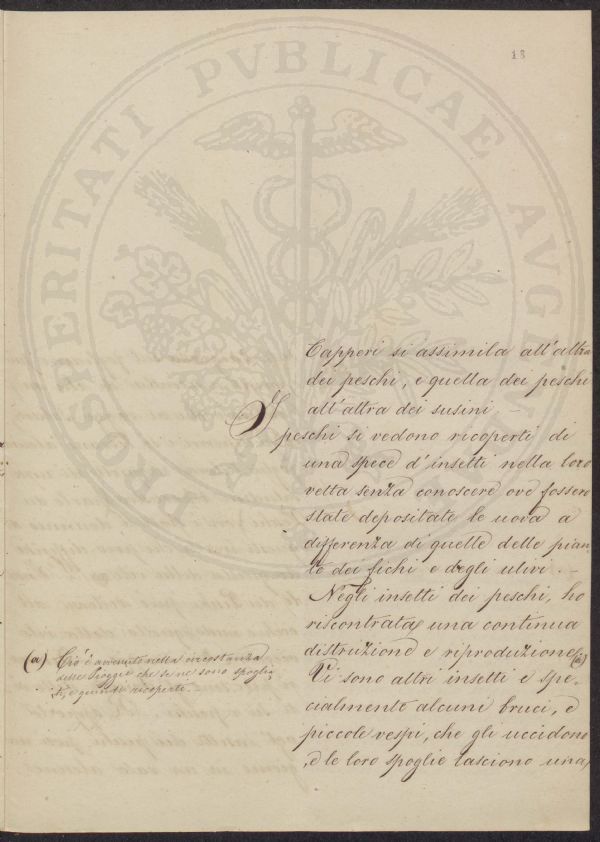 18
PROSPERITATI PVBLICAE AVGEN
Capperi si assimila all'altra
dei peschi, e quella dei peschi
all'altra dei susini. —
I peschi si vedono ricoperti di
una spece d'insetti nella loro
vetta senza conoscere ove fossero
state depositate le uova a
differenza di quelle delle pian-
te dei fichi e degli ulivi. —
Negli insetti dei peschi, ho
riscontrata una continua
distruzione e riproduzione (a)
Vi sono altri insetti e spe-
cialmente alcuni bruci, e
piccole vespi, che gli uccidono
, e le loro spoglie lasciono una
(a) Ciò è avvenuto nella circostanza
delle Piogge che se ne sono spoglia
ti, e quindi ricoperti.